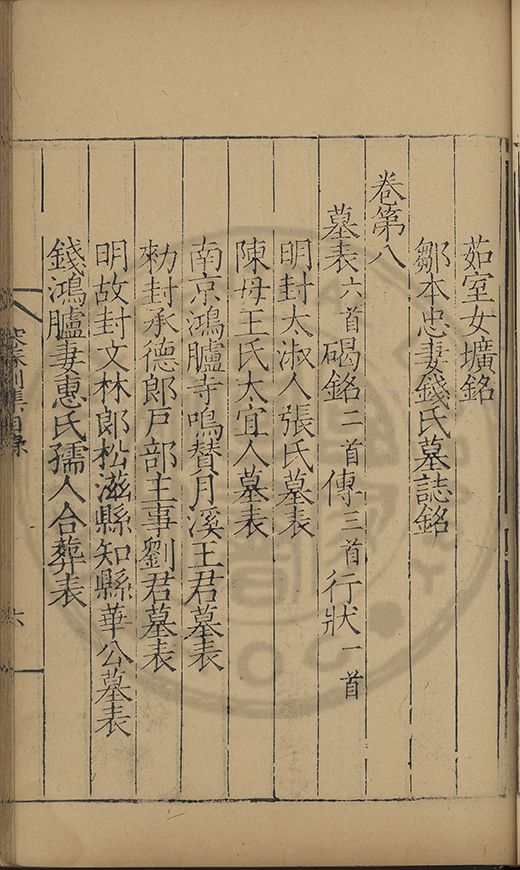 茹室女壙銘
鄒本忠妻錢氏墓誌銘
卷第八
墓表六首碣銘二首傳三首行狀一首
明封太淑人張氏墓表
陳母王氏太宜人墓表
南京鴻臚寺鳴贊月溪王君墓表
勑封承德郎戶部主事劉君墓表
明故封文林郎松滋縣知縣華公墓表
錢鴻臚妻惠氏孺人合葬表
集目錄
六